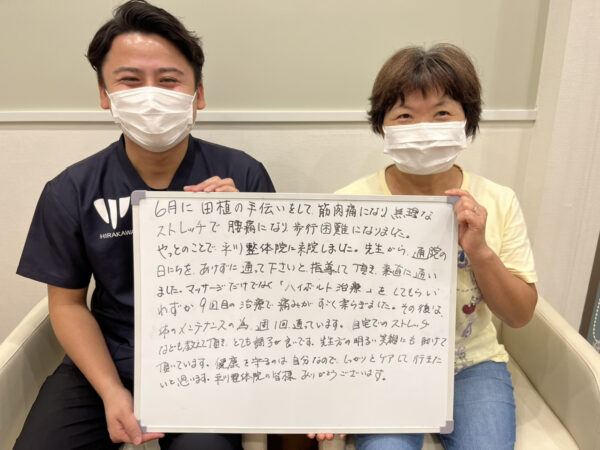 HIRAKAWA
6月に 田植の手伝いをして 筋肉痛になり 無理な
ストレッチで 腰痛になり 歩行困難になりました。
やっとのことで 平川整体院に来院しました。先生から、通院の
日にちを、あけずに通って下さいと、指導して頂き、素直に通い
ました。マッサージだけでなく「ハイボルト治療」をしてもらい
わずか 9回目の治療で痛みがすごく柔らぎました。その後は
体のメンテナンスの為、週1回、通っています。自宅でのストレッチ
なども教えて頂き とても調子が良いです。先生方の明るい笑顔にも助けて
頂いています。健康を守るのは自分なので、しっかりとケアして行きた
いと思います。平川整体院の皆様 ありがとうございます。